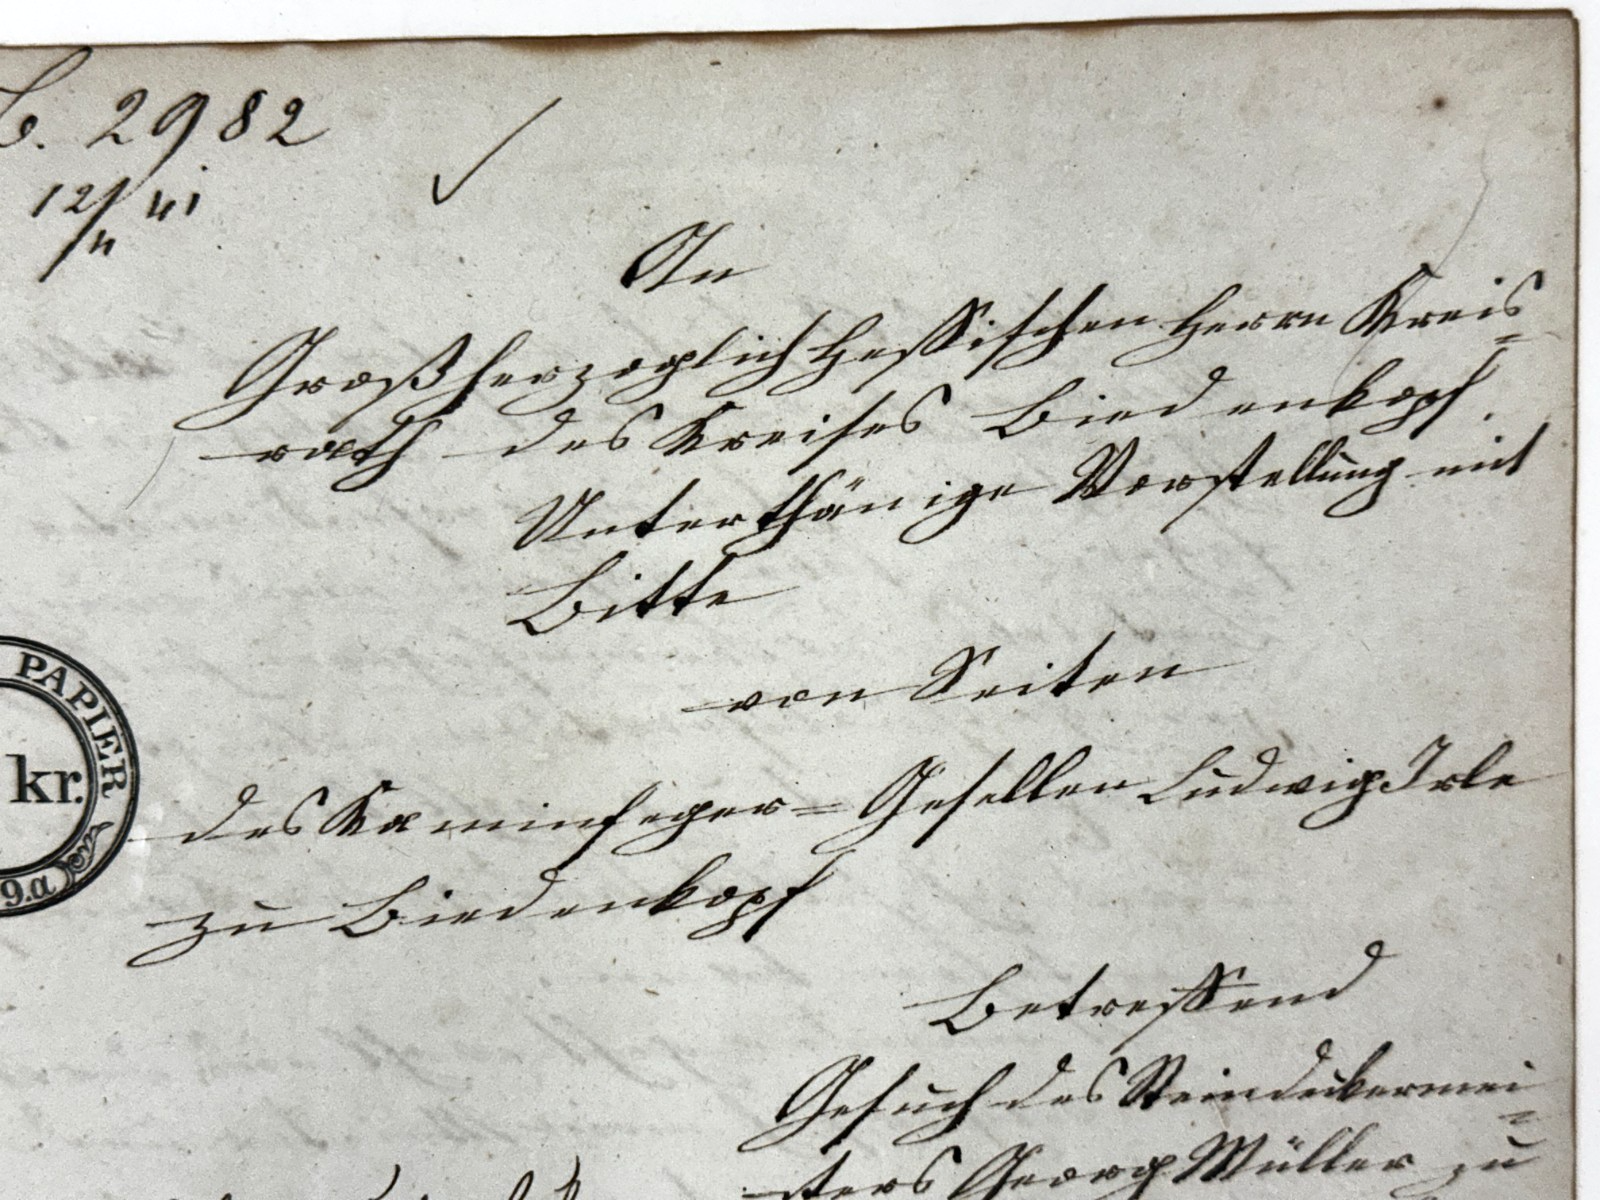 b. 2982
12/4 41
An
Großherzoglich Hessischen Herrn Kreis=
rath des Kreises Biedenkopf.
Unterthänige Vorstellung mit
Bitte
von Seiten
des Kaminfeger=Gesellen Ludwig Irle
zu Biedenkopf
PAPIER
kr.
9.a
Betreffend
Gesuch des Steindeckermei=
sters Georg Müller zu